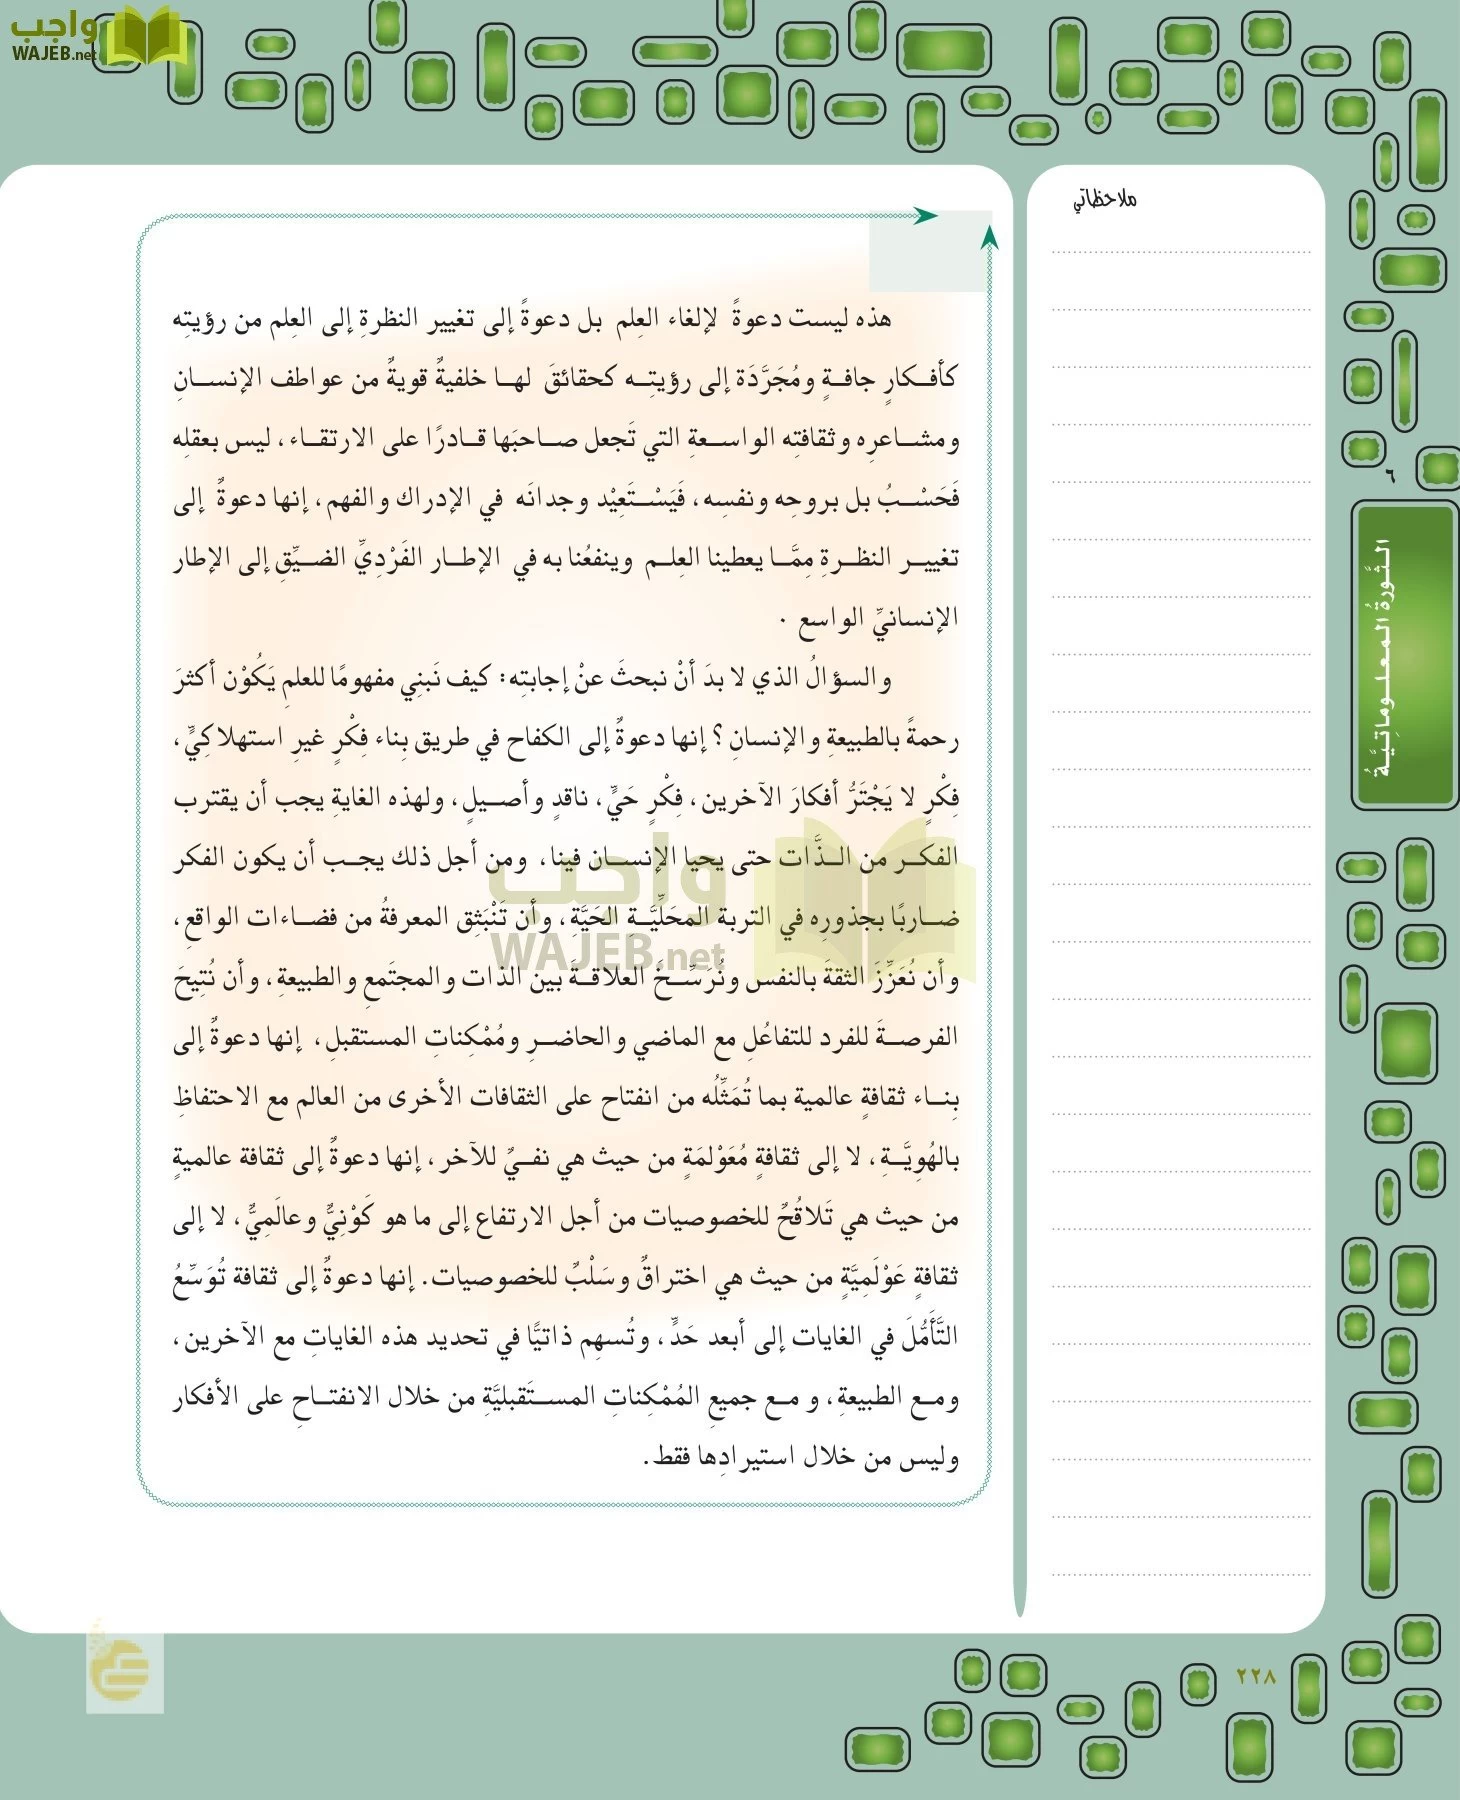 واجب
WAJEB.net
ملاحظاتي
هذه ليست دعوةً لإلغاء العِلم بل دعوةً إلى تغيير النظرةِ إلى العِلم من رؤيتِه
كأفـكارٍ جافـةٍ ومُجَرَّدَة إلى رؤيتِـه كحقائقَ لهـا خلفيةٌ قويةٌ من عواطف الإنسـانِ
ومشـاعرِه وثقافتِه الواسـعةِ التي تَجعل صـاحبَها قـادرًا على الارتقـاء، ليس بعقلِه
فَحَسْـبُ بل بروحِه ونفسِه، فَيَسْـتَعِيْد وجدانَه في الإدراك والفهم، إنها دعوةٌ إلى
تغييـر النظـرةِ مِمَّـا يعطينا العِلـم وينفعُنا به في الإطـار الفَرْدِيِّ الضـيِّقِ إلى الإطار
الإنسانيِّ الواسع .
والسؤالُ الذي لا بدَ أنْ نبحثَ عنْ إجابتِه: كيف نَبنِي مفهومًا للعلمِ يَكُوْن أكثرَ
رحمةً بالطبيعةِ والإنسانِ؟ إنها دعوةٌ إلى الكفاح في طريق بِناء فِكْرٍ غيرِ استهلاكِيٍّ،
فِكْرٍ لا يَجْتَرُّ أفكارَ الآخرين، فِكْرٍ حَيٍّ، ناقدٍ وأصـيلٍ، ولهذه الغايةِ يجب أن يقترب
الفكـر من الـذَّات حتى يحيا الإنسـان فينا، ومن أجل ذلك يجـب أن يكون الفكر
ضـاربًا بجذورِه في التربة المحَلِّيَّـةِ الحَيَّةِ، وأن تَنْبَثِق المعرفةُ من فضـاءات الواقعِ،
وأن نُعَزِّزَ الثقةَ بالنفس ونُرَسِّـخَ العلاقـةَ بين الذات والمجتَمعِ والطبيعةِ، وأن نُتِيحَ
الفرصـةَ للفرد للتفاعُلِ مع الماضي والحاضـرِ ومُمْكِناتِ المستقبلِ، إنها دعوةٌ إلى
بِنـاء ثقافةٍ عالمية بما تُمَثِّلُه من انفتاح على الثقافات الأخرى من العالم مع الاحتفاظِ
بالهُوِيَّـةِ، لا إلى ثقافةٍ مُعَوْلمَةٍ من حيث هي نفـيٌ للآخر، إنها دعوةٌ إلى ثقافة عالميةٍ
من حيث هي تَلاقُحٌ للخصوصيات من أجل الارتفاع إلى ما هو كَوْنِيٌّ وعالَمِيٌّ، لا إلى
ثقافةٍ عَوْلَمِيَّةٍ من حيث هي اختراقٌ وسَلْبٌ للخصوصيات. إنها دعوةٌ إلى ثقافة تُوَسِّعُ
التَّأَمُّلَ في الغايات إلى أبعد حَدٍّ، وتُسهِم ذاتيًّا في تحديد هذه الغاياتِ مع الآخرين،
ومـع الطبيعةِ، و مـع جميعِ المُمْكِناتِ المسـتَقبليَّةِ من خلال الانفتـاحِ على الأفكار
وليس من خلال استيرادِها فقط.
واجب
WAJEB.net
٦
الـثَّـورةُ المـعـلـومـاتـيَّـةُ
٢٢٨